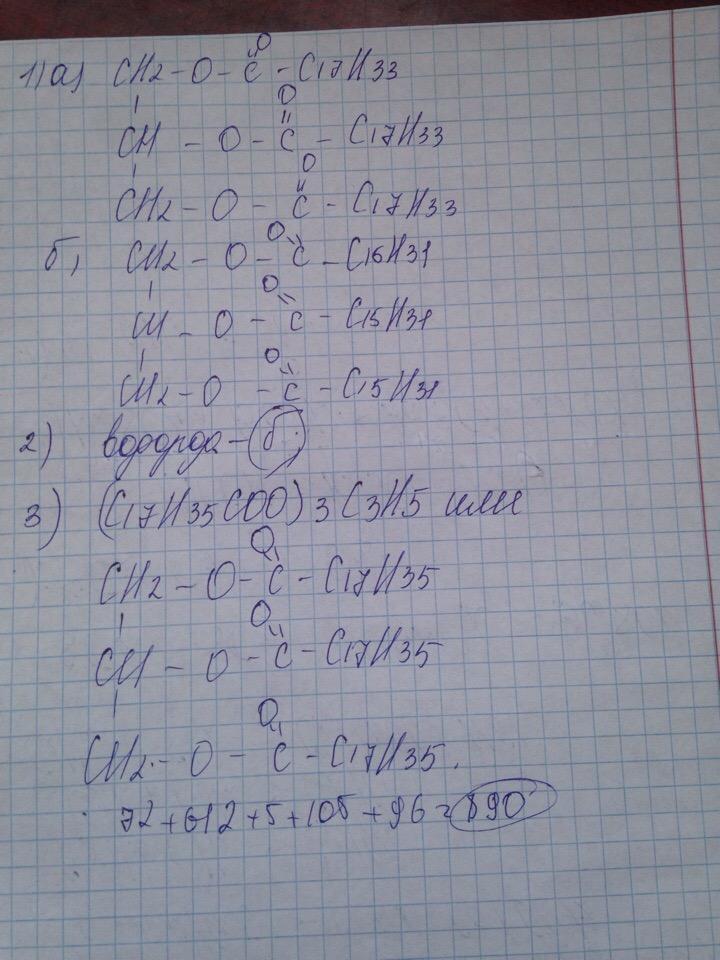 1) а) CH2 - O - C - C17H33
O
CH - O - C - C17H33
O
CH2 - O - C - C17H33
O
б) CH2 - O - C - C16H31
O
CH - O - C - C15H31
O
CH2 - O - C - C15H31
O
2) водорда - б.
3) (C17H35COO)3C3H5 или
O
CH2 - O - C - C17H35
O
CH - O - C - C17H35
O
CH2 - O - C - C17H35.
72+612+5+105+96=890